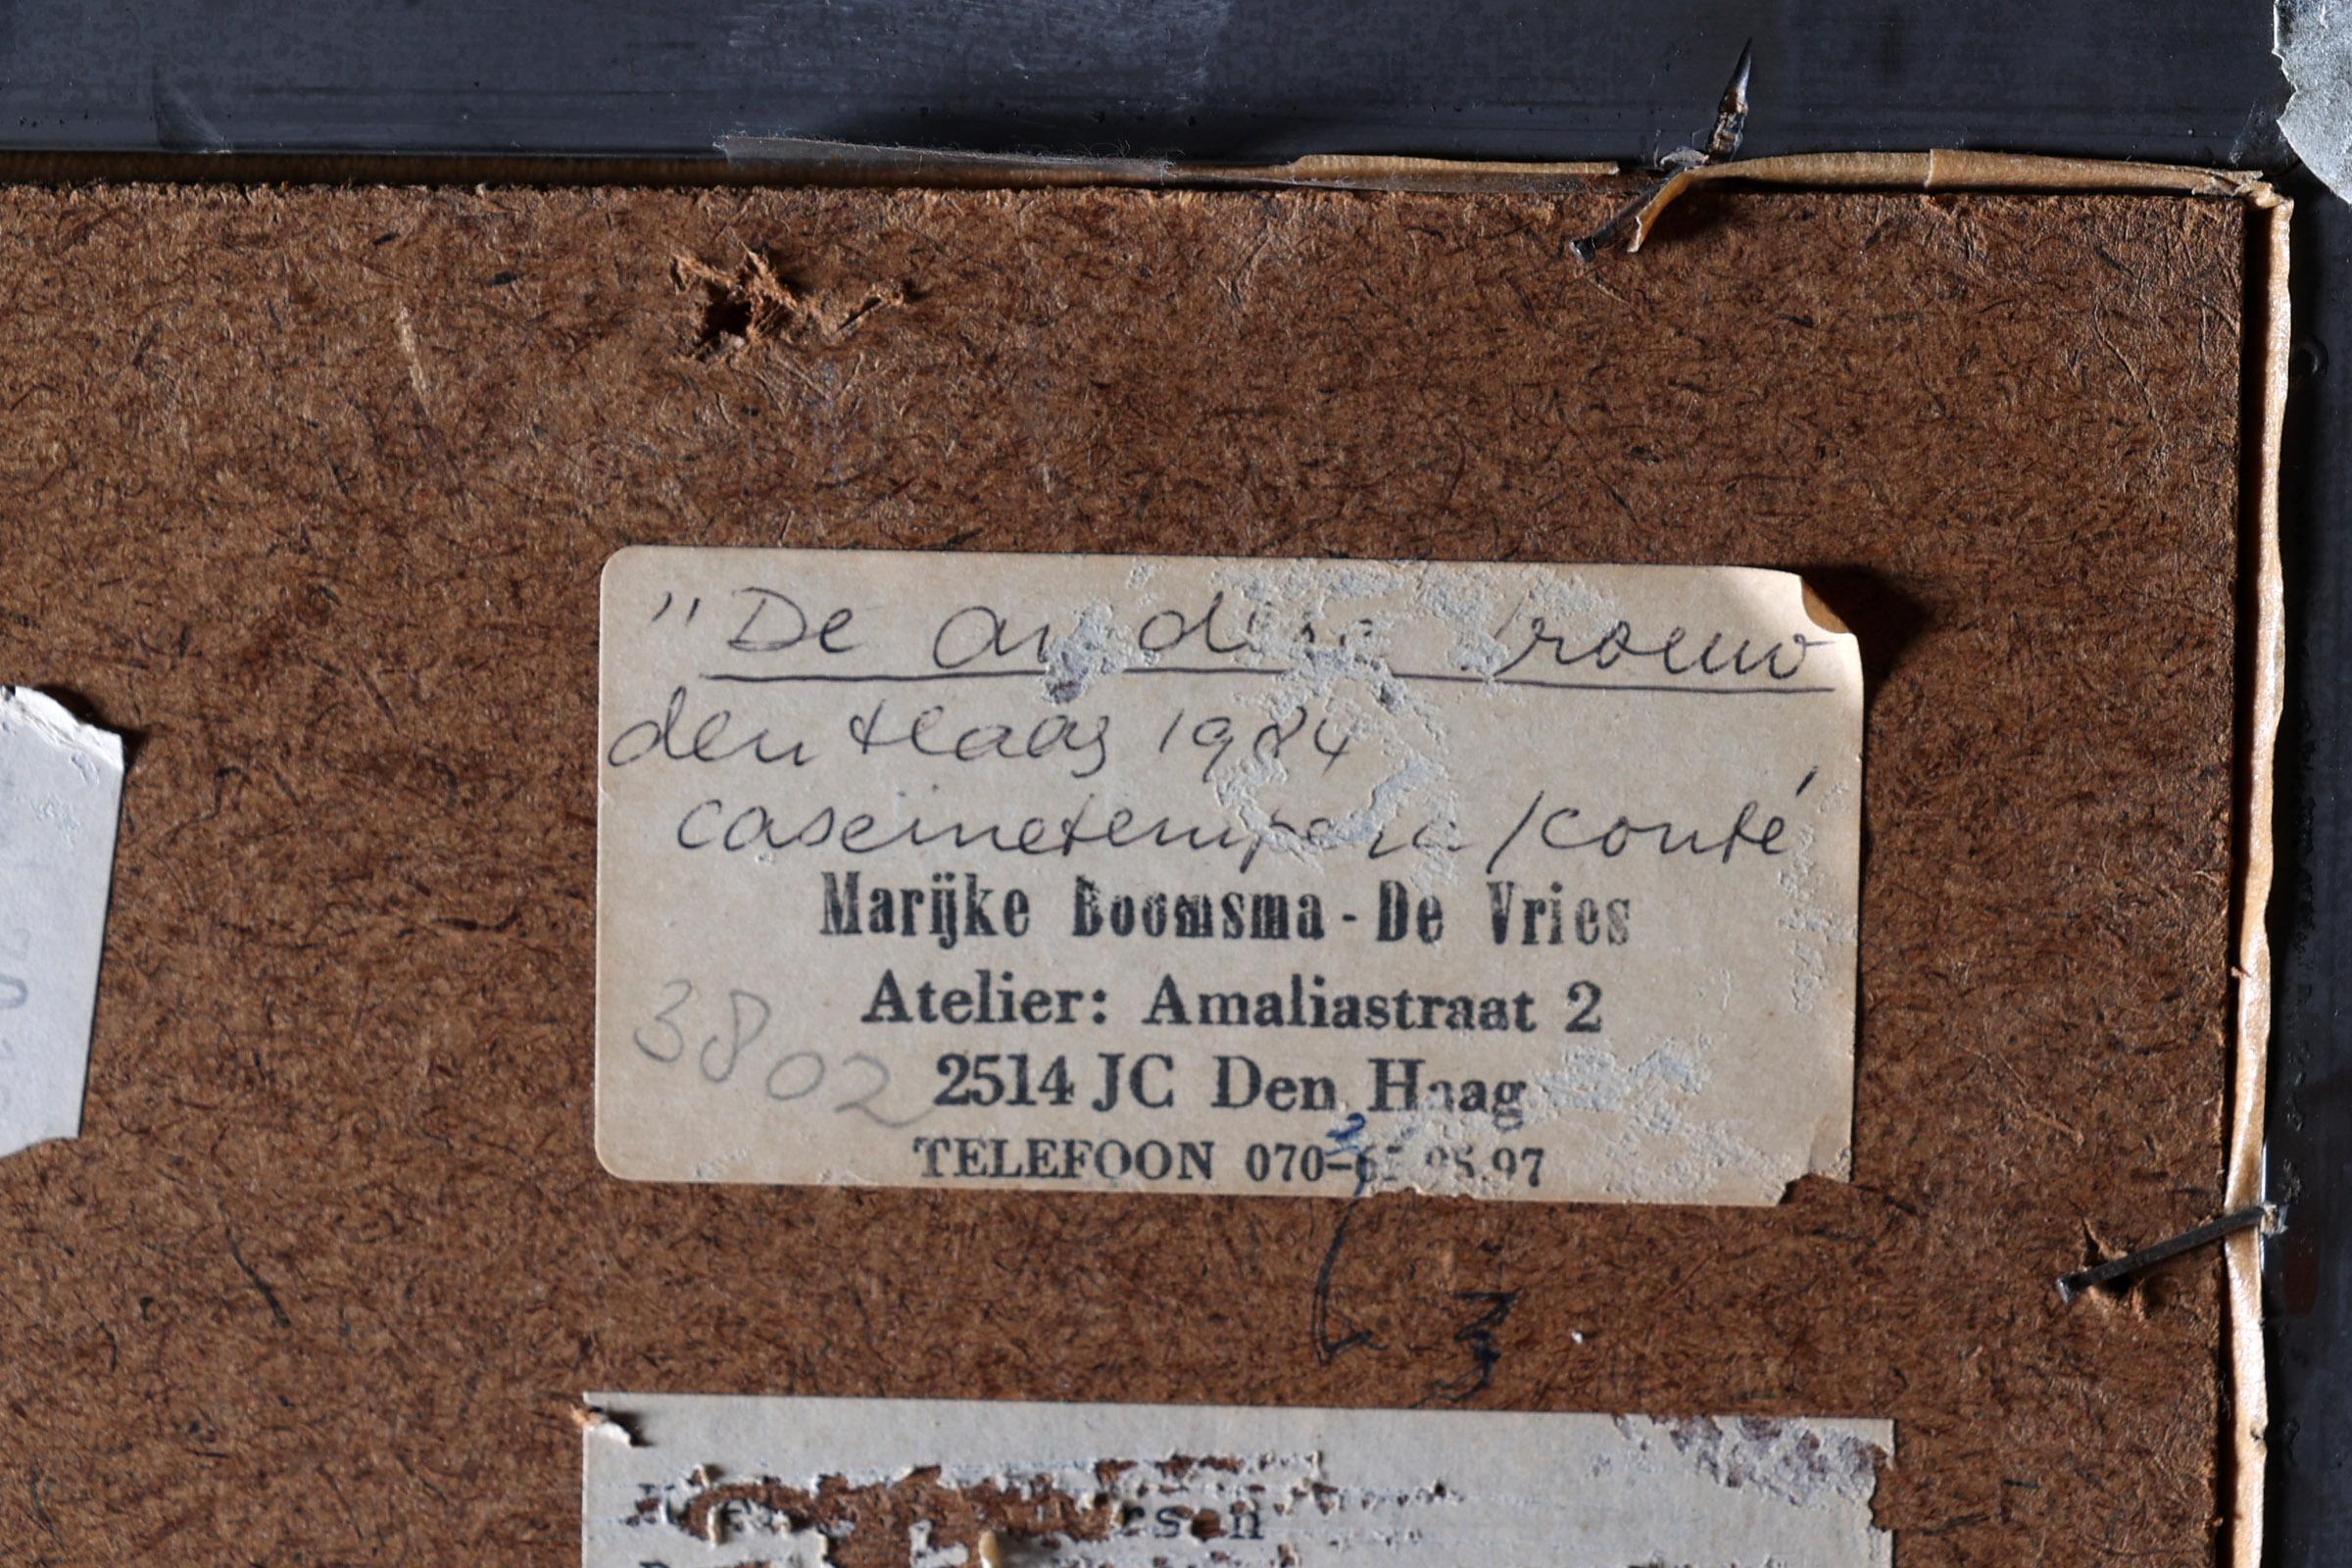 "De andere vrouw
den Haag 1984
caseinetempera/conté
Marijke Boomsma - De Vries
Atelier: Amaliastraat 2
3802
2514 JC Den Haag
TELEFOON 070-
3